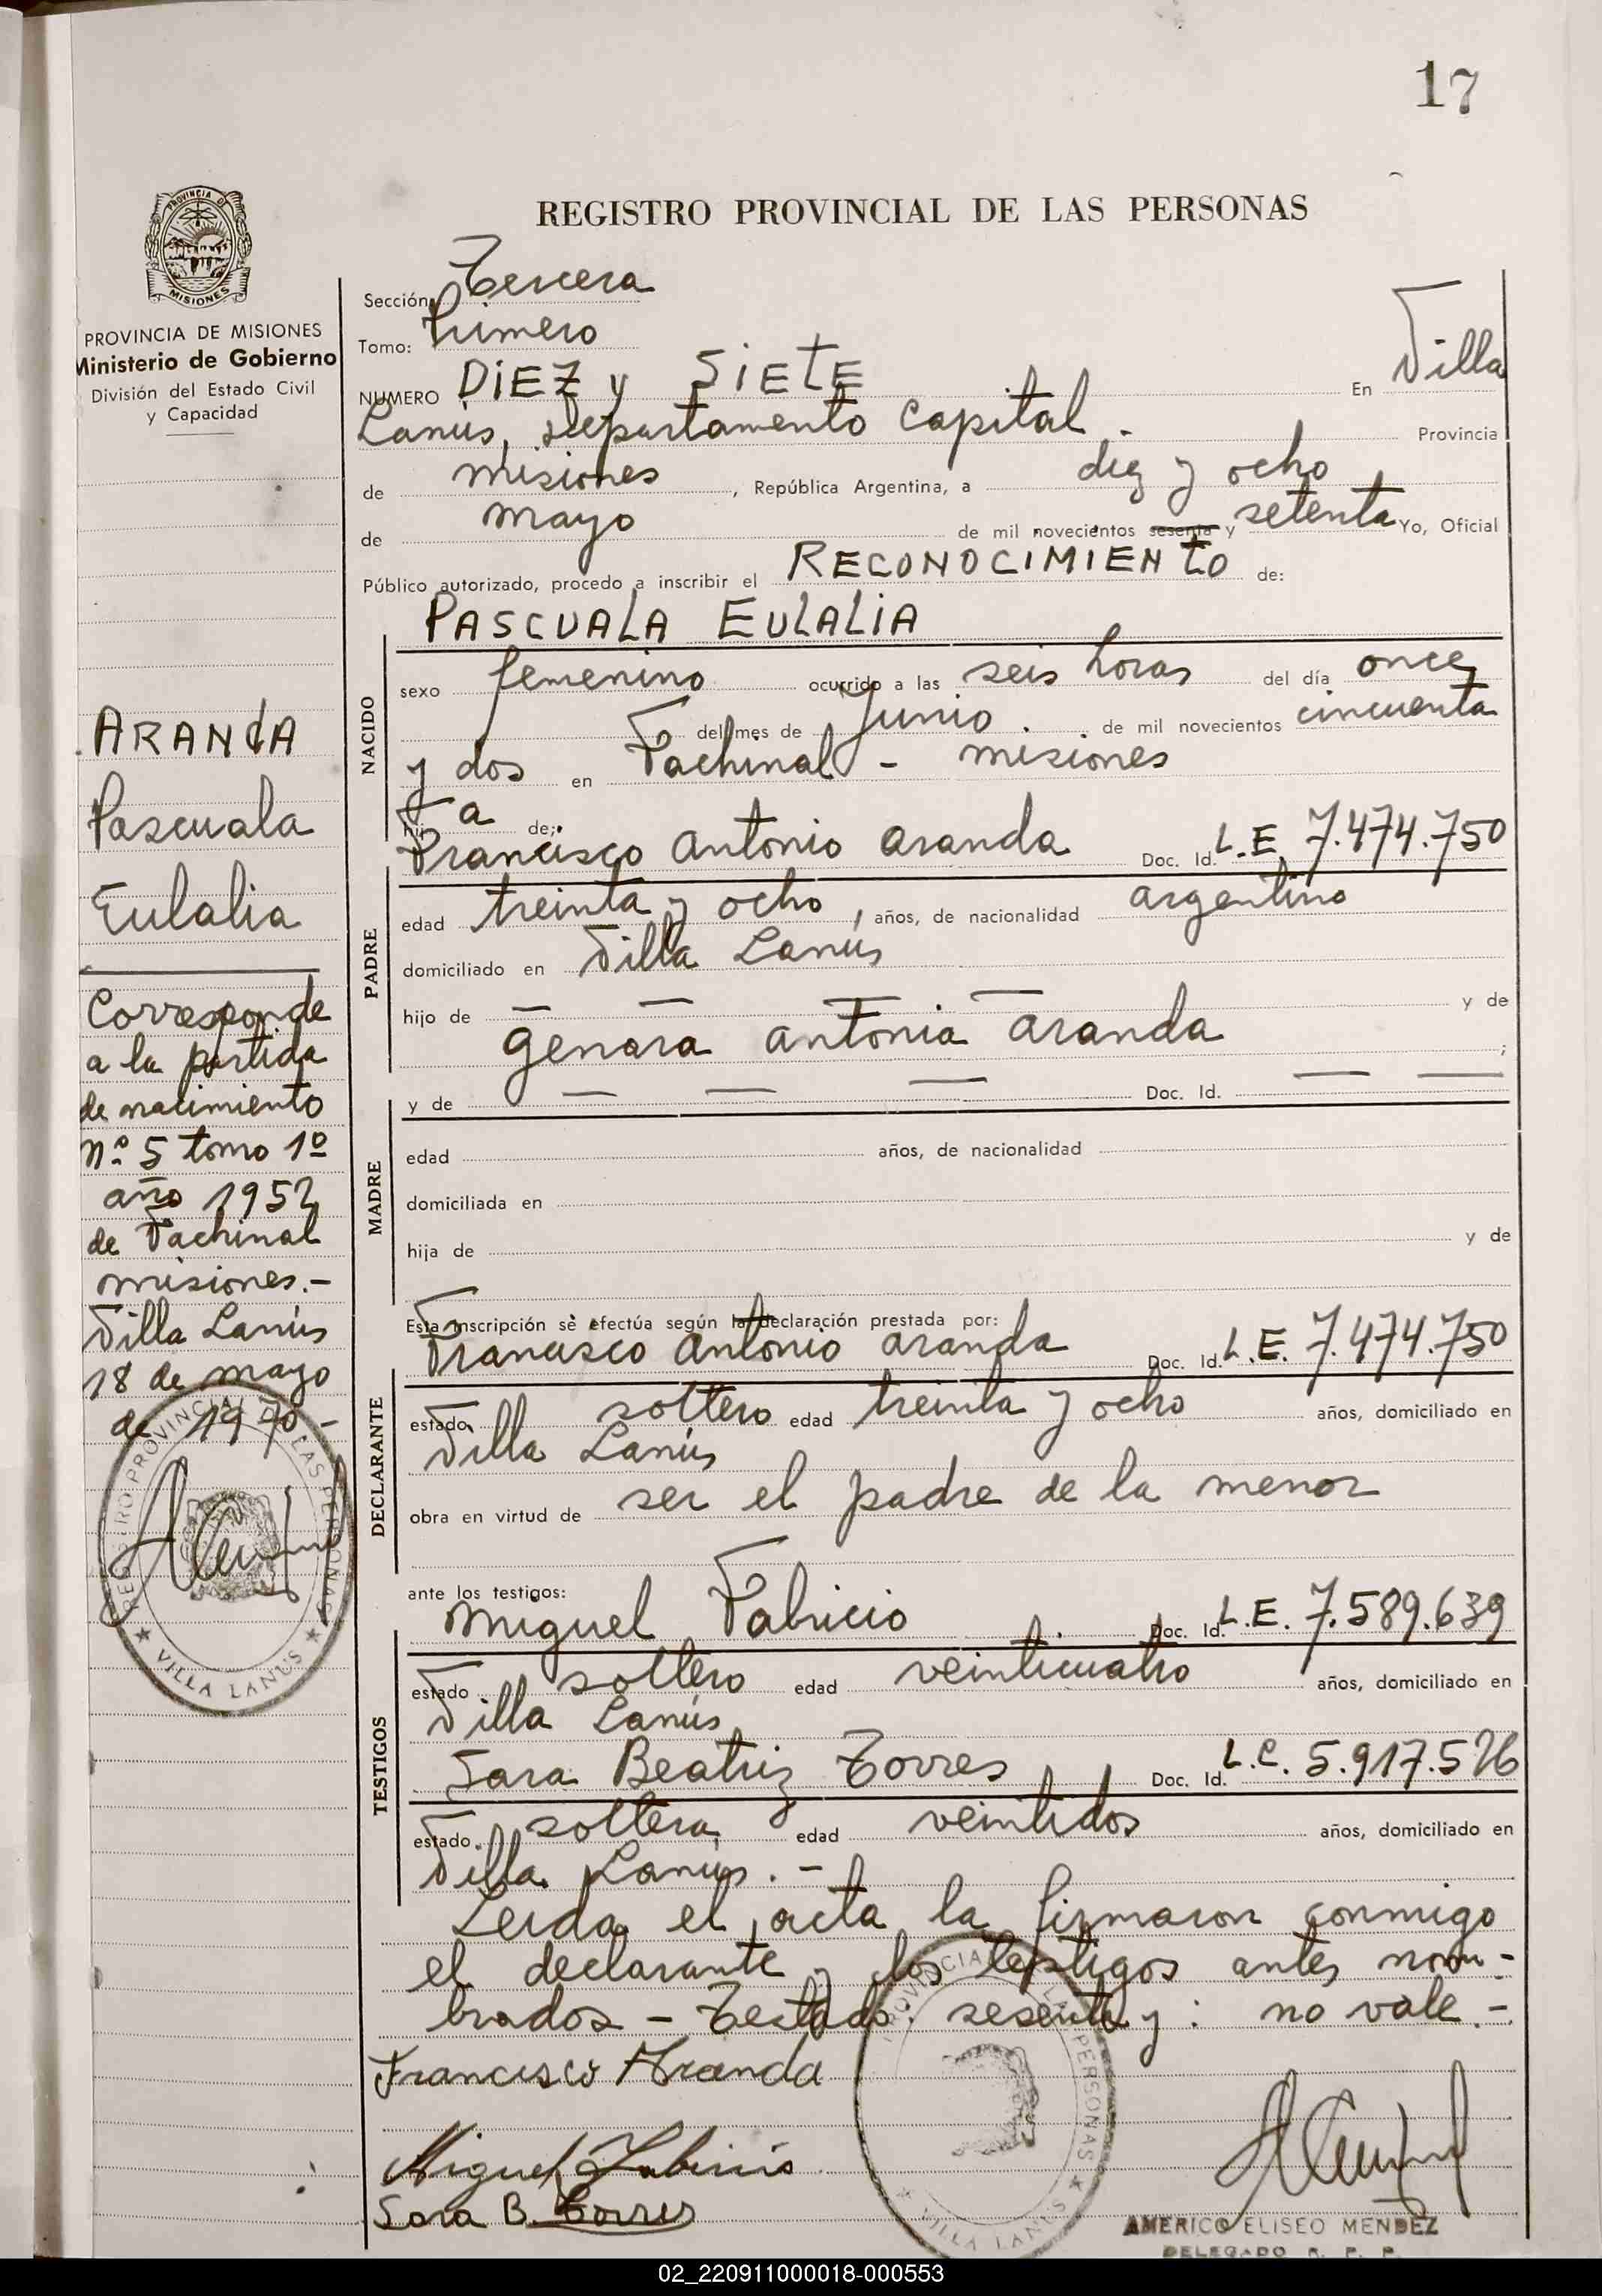 17
REGISTRO PROVINCIAL DE LAS PERSONAS
PROVINCIA DE
MISIONES
PROVINCIA DE MISIONES
Ministerio de Gobierno
División del Estado Civil
y Capacidad
ARANdA
Pascuala
Eulalia
Corresponde
a la partida
de nacimiento
nº 5 tomo 1º
año 1952
de Fachinal
misiones.-
Villa Lanús
18 de mayo
de 1970.-
REGISTRO PROVINCIAL DE LAS PERSONAS
VILLA LANUS
Sección: Tercera
Tomo: Primero
NUMERO DiEZ y SiETE En Villa
Lanús, departamento Capital . Provincia
de misiones , República Argentina, a diez y ocho
de mayo de mil novecientos sesenta y setenta Yo, Oficial
Público autorizado, procedo a inscribir el RECONOCIMIENTO de:
PASCUALA EULALIA
NACIDO
sexo femenino ocurrido a las seis horas del día once
del mes de Junio . de mil novecientos cincuenta
y dos en Fachinal - misiones
hij a de:
Francisco Antonio Aranda Doc. Id. L.E. 7.474.750
PADRE
edad treinta y ocho , años, de nacionalidad argentino
domiciliado en Villa Lanús
hijo de — — — — y de
Genara Antonia Aranda ;
y de — — — Doc. Id. — —
MADRE
edad años, de nacionalidad
domiciliada en
hija de y de
Esta inscripción se efectúa según la declaración prestada por:
Francisco Antonio Aranda Doc. Id. L.E. 7.474.750
DECLARANTE
estado soltero edad treinta y ocho años, domiciliado en
Villa Lanús
obra en virtud de ser el padre de la menor
ante los testigos:
Miguel Fabricio Doc. Id. L.E. 7.589.639
TESTIGOS
estado soltero edad veinticuatro años, domiciliado en
Villa Lanús
Sara Beatriz Torres Doc. Id. L.C. 5.917.526
estado soltera edad veintidos años, domiciliado en
Villa Lanús.-
Leida el acta la firmaron conmigo
el declarante y los testigos antes nom-
brados - Testado: sesenta y: no vale.-
Francisco Aranda
Miguel Fabricio
Sara B. Torres
PROVINCIAL DE LAS PERSONAS
VILLA LANUS
AMERICO ELISEO MENDEZ
DELEGADO R. P. P.
02_220911000018-000553